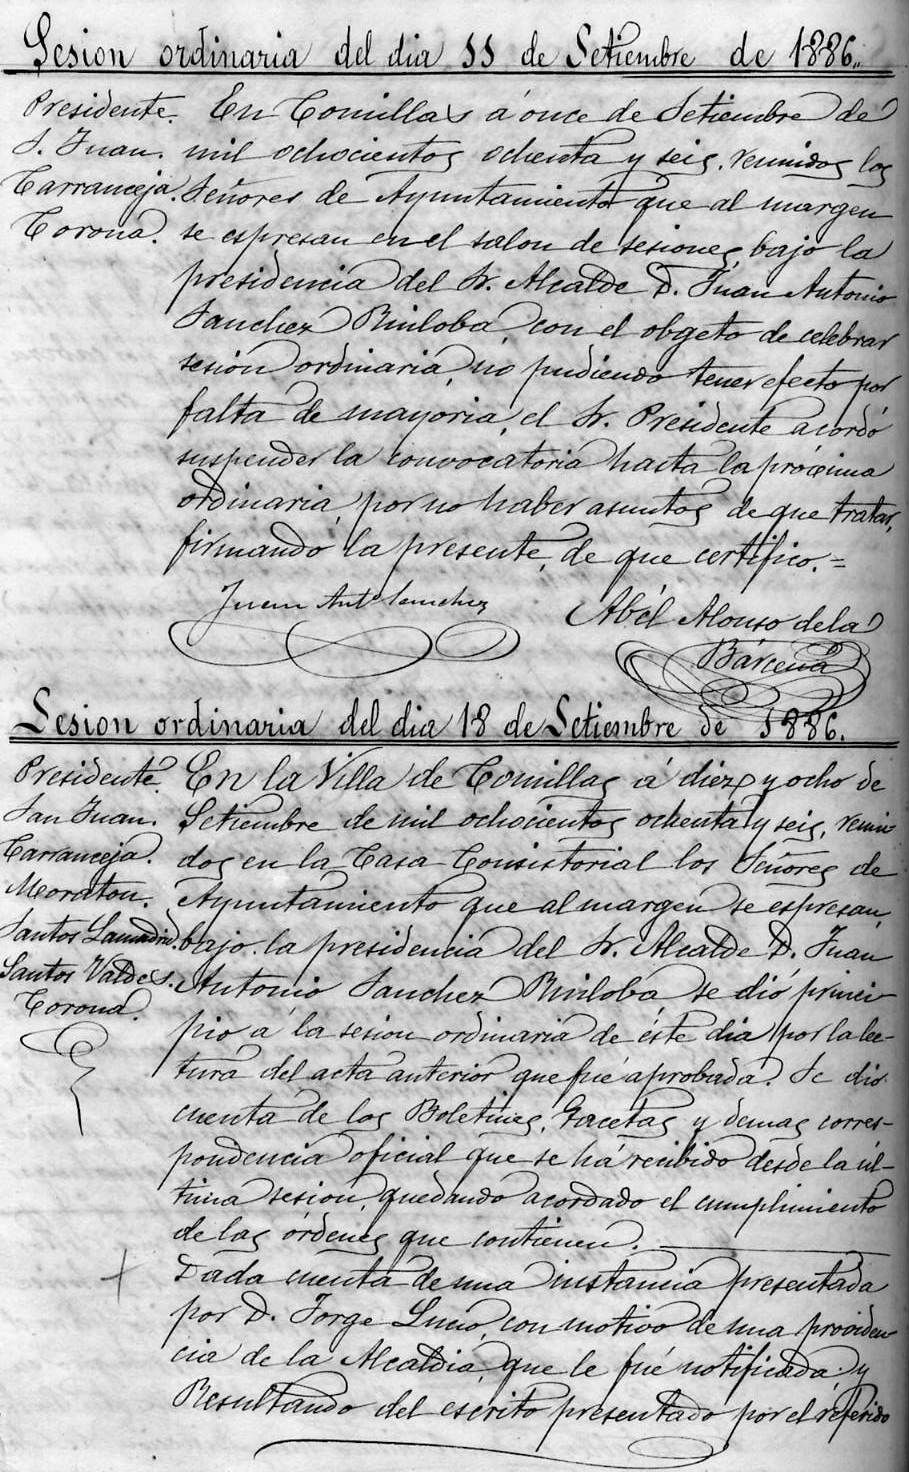 Sesion ordinaria del dia 11 de Setiembre de 1886.
Presidente.
S. Juan.
Carranceja.
Corona.
En Comillas á once de Setiembre de
mil ochocientos ochenta y seis, reunidos los
Señores de Ayuntamiento que al margen
se espresan en el salon de sesiones, bajo la
presidencia del Sr. Alcalde D. Juan Antonio
Sanchez Ruiloba, con el obgeto de celebrar
sesion ordinaria, no pudiendo tener efecto por
falta de mayoria, el Sr. Presidente acordó
suspender la convocatoria hasta la próxima
ordinaria, por no haber asuntos de que tratar,
firmando la presente, de que certifico.=
Juan Antº Sanchez
Abél Alonso de la
Bárcena
Sesion ordinaria del dia 18 de Setiembre de 1886.
Presidente.
San Juan.
Carranceja.
Moraton.
Santos Lamadrid.
Santos Valdes.
Corona.
En la Villa de Comillas á diez y ocho de
Setiembre de mil ochocientos ochenta y seis, reuni-
dos en la Casa Consistorial los Señores de
Ayuntamiento que al margen se espresan
bajo la presidencia del Sr. Alcalde D. Juan
Antonio Sanchez Ruiloba se dió princi-
pio á la sesion ordinaria de éste dia por la lec-
tura del acta anterior que fué aprobada. Se dió
cuenta de los Boletines, Gacetas y demas corres-
pondencia oficial que se há recibido desde la úl-
tima sesion, quedando acordado el cumplimiento
de las órdenes que contienen.
Dada cuenta de una instancia presentada
por D. Jorge Lucio, con motivo de una providen-
cia de la Alcaldia, que le fué notificada; y
Resultando del escrito presentado por el referido